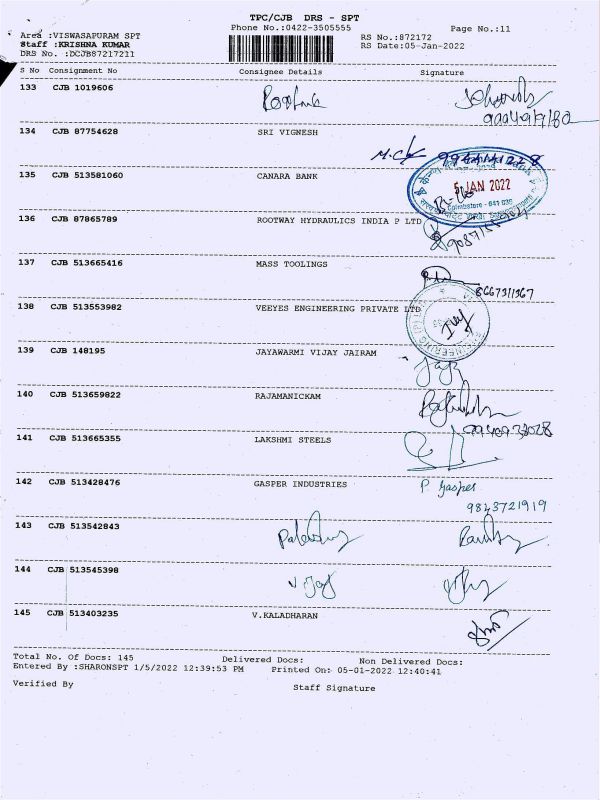 TPC/CJB DRS - SPT
Phone No.:0422-3505555
Page No.:11
Area :VISWASAPURAM SPT
RS No.:872172
Staff :KRISHNA KUMAR
RS Date:05-Jan-2022
DRS No. :DCJB87217211
S No Consignment No Consignee Details Signature
133 CJB 1019606
134 CJB 87754628 SRI VIGNESH
135 CJB 513581060 CANARA BANK
5 JAN 2022
136 CJB 87865789 ROOTWAY HYDRAULICS INDIA P LTD
137 CJB 513665416 MASS TOOLINGS
8667311367
138 CJB 513553982 VEEYES ENGINEERING PRIVATE LTD
139 CJB 148195 JAYAWARMI VIJAY JAIRAM
140 CJB 513659822 RAJAMANICKAM
141 CJB 513665355 LAKSHMI STEELS
142 CJB 513428476 GASPER INDUSTRIES P. Gasper
9843721919
143 CJB 513542843
144 CJB 513545398
145 CJB 513403235 V.KALADHARAN
Total No. Of Docs: 145 Delivered Docs: Non Delivered Docs:
Entered By :SHARONSPT 1/5/2022 12:39:53 PM Printed On:- 05-01-2022 12:40:41
Verified By Staff Signature